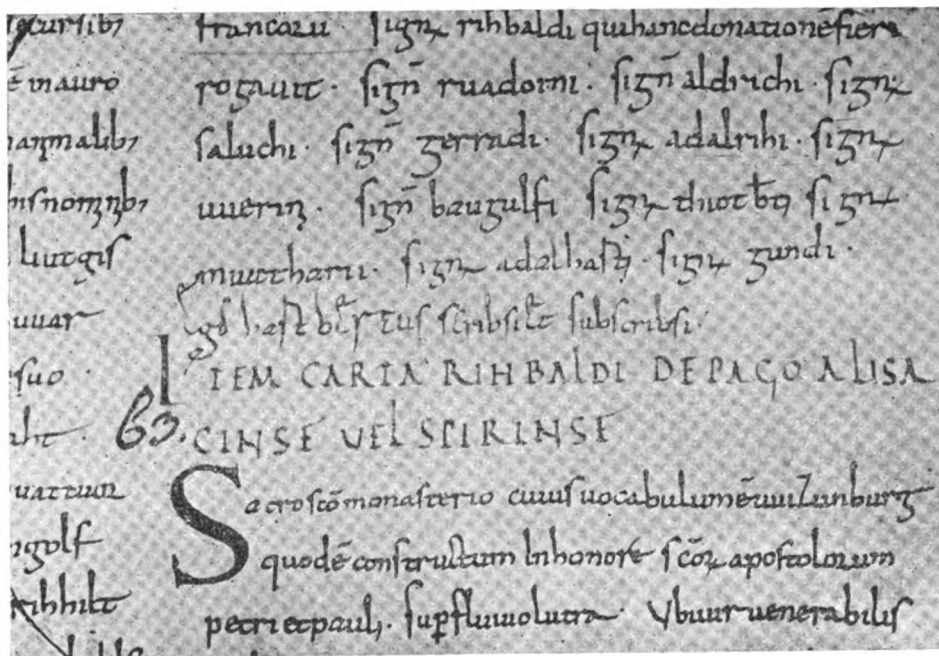 ē mauro
liutgis
uuar
suo ·
uattuor
golf
rihhilt
francorū signꝝ rihbaldi qui hanc donationē fiere
rogauit · signū ruadoini · signū aldrichi · signꝝ
saluchi · signū gerradi · signꝝ adalrihi · signꝝ
uuerini · signū baugulfi signꝝ thiotbti signꝝ
nuutharii · signꝝ adalhasti · signꝝ gundi ·
scribsi et subscribsi ·
ITEM CARTA RIHBALDI DE PAGO ALISA
63. CINSE VEL SPIRINSE
Sacro scō monasterio cuius uocabulum ē uuizunburg
quod ē constructum In honore scōꝝ apostolorum
petri et pauli · sup fluuio lutra · Vbi uur uenerabilis